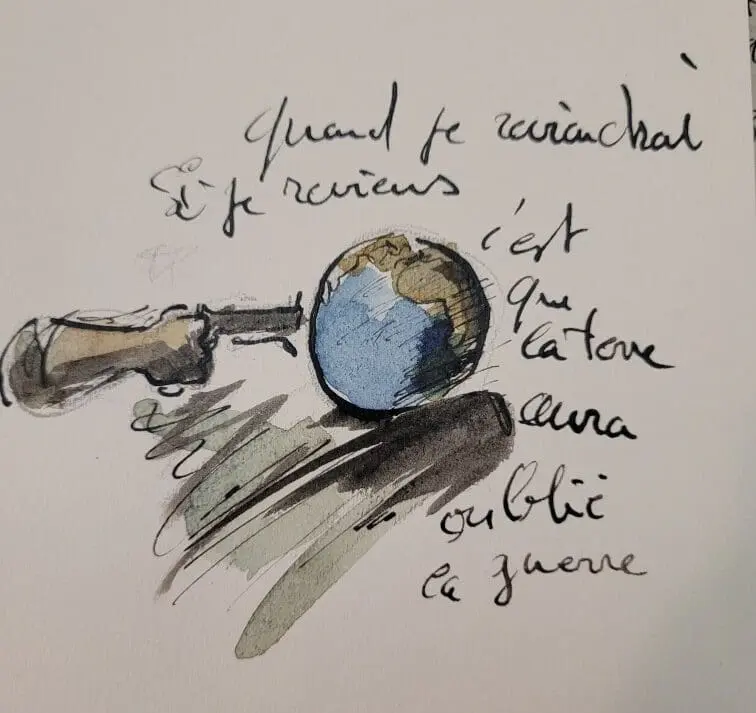 quand je reviendrai
Si je reviens
c'est
que
la terre
aura
oublié
la guerre